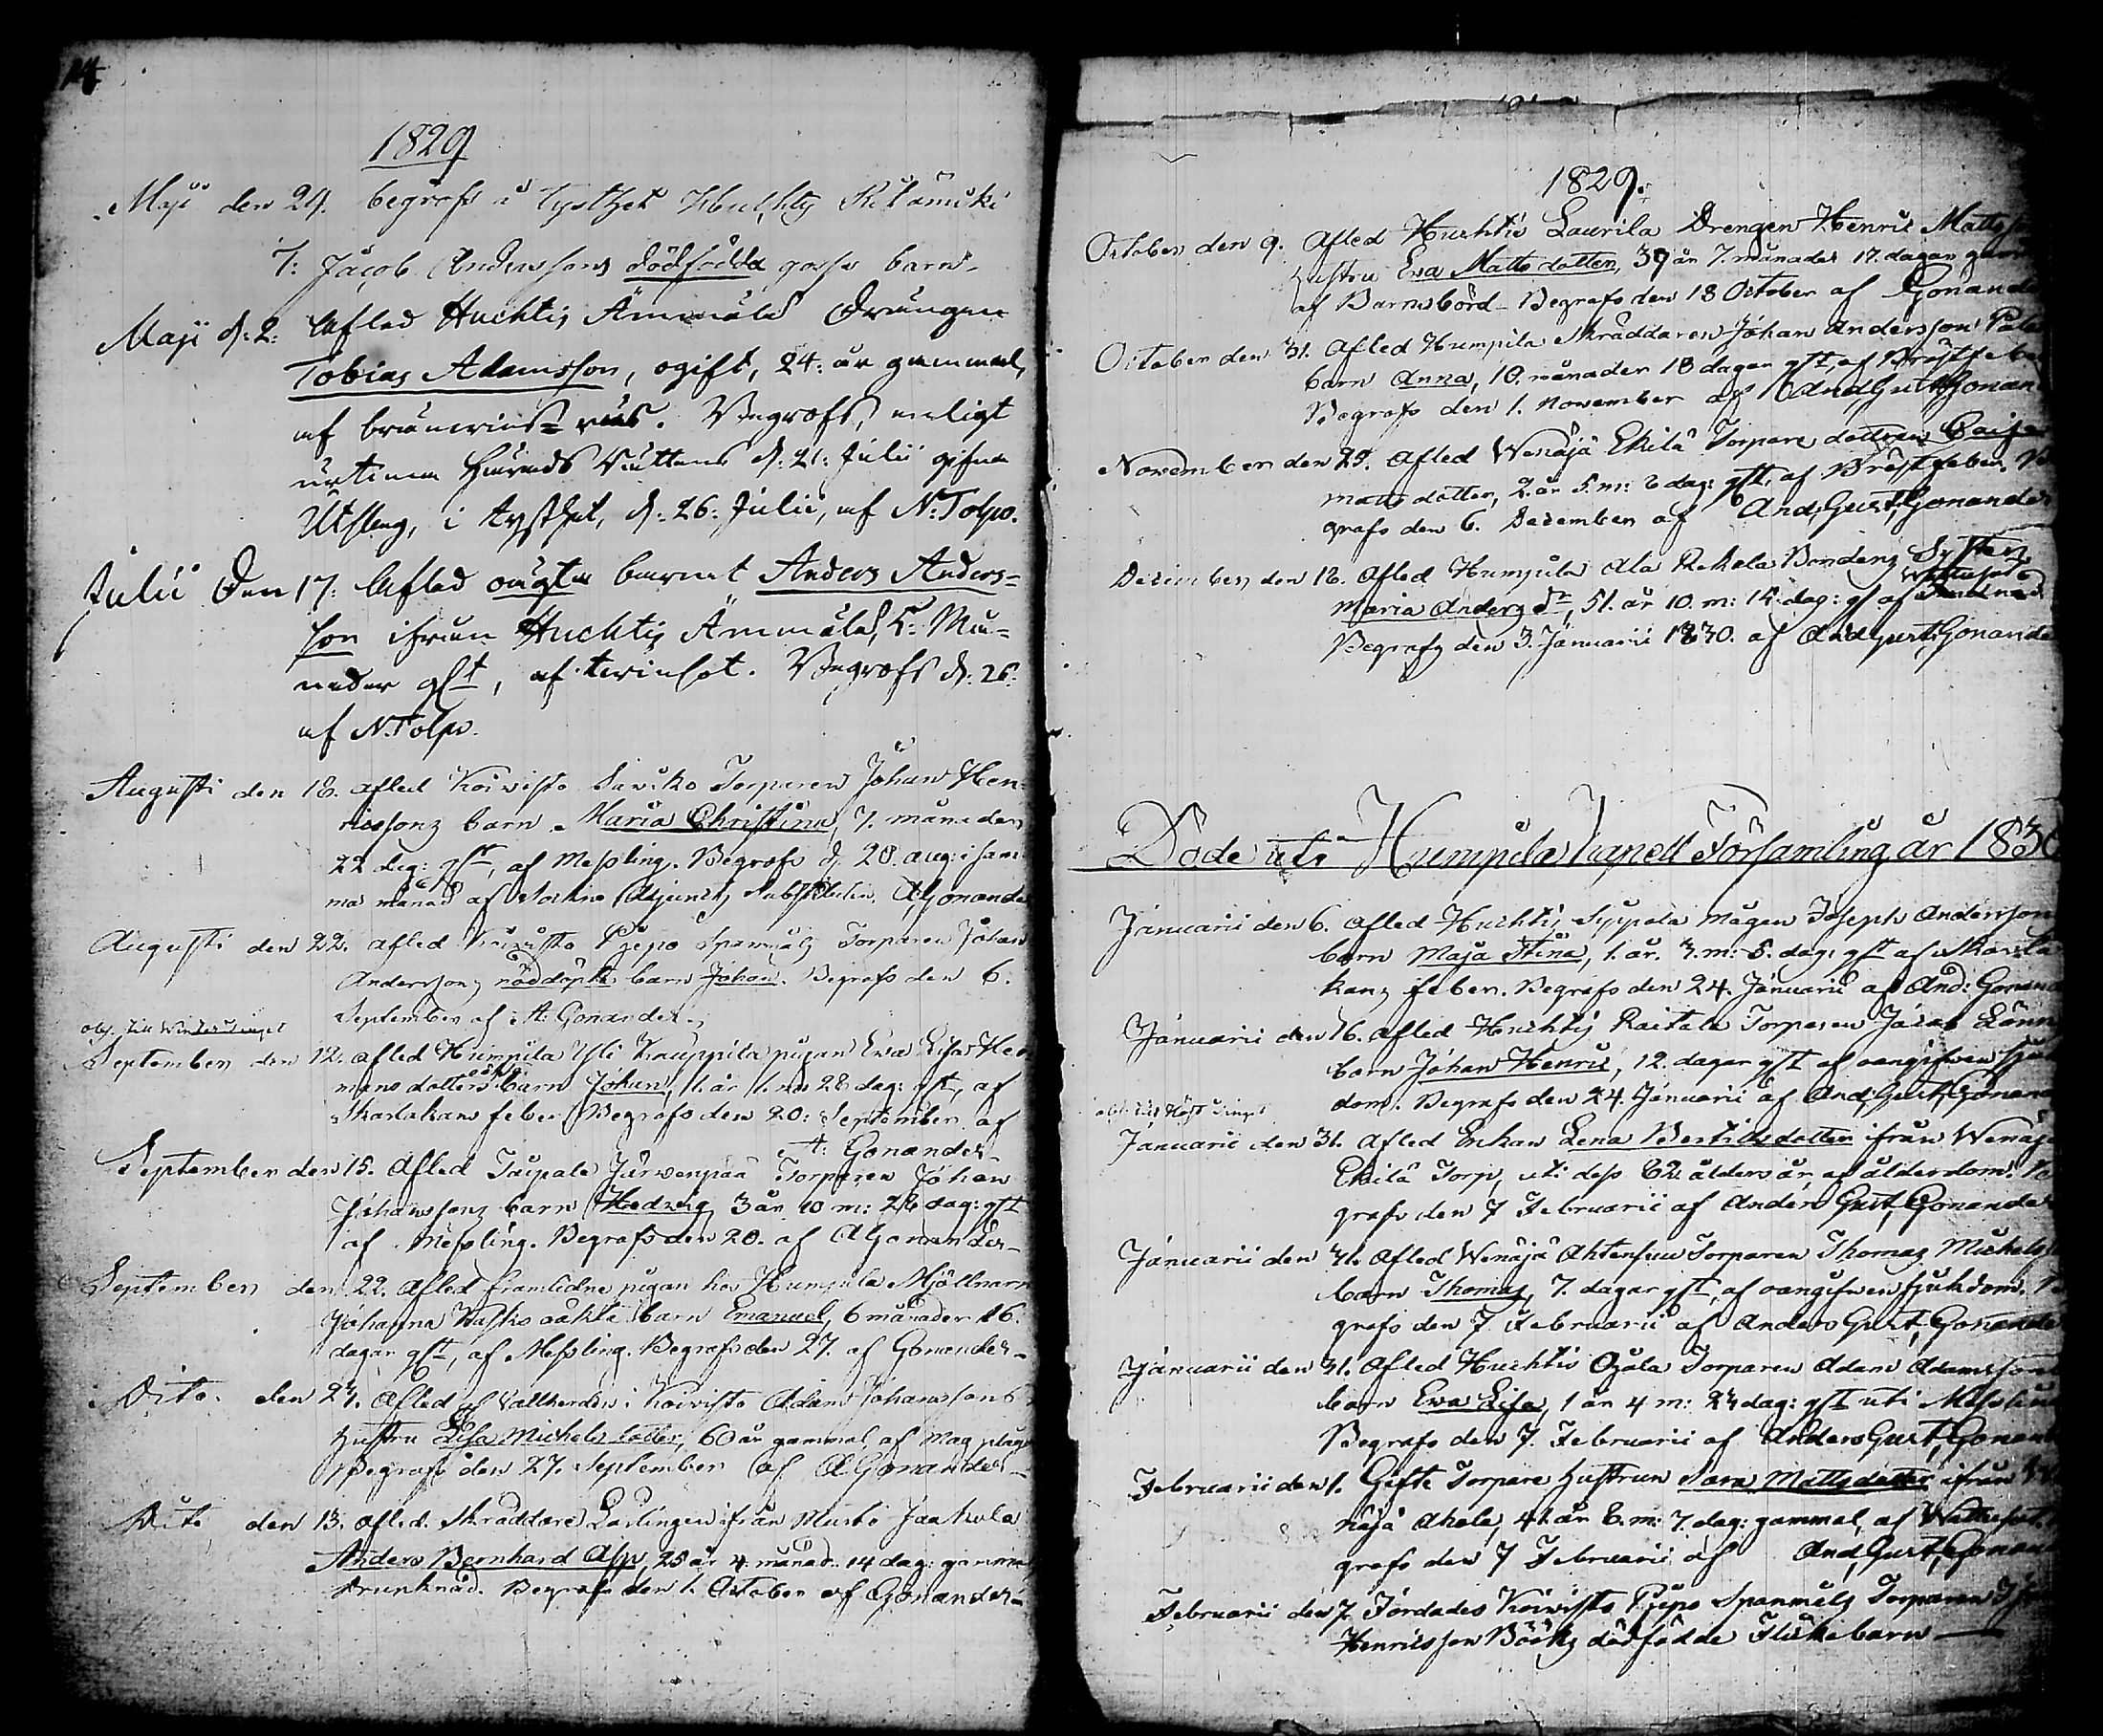 14
1829
Maji den 24. begrofs i tysthet Huchtis
T: Jacob Anderssons dödfödda gosse barn.
Maji d: 2. Afled Huchtis Ämmälä Drängen
Tobias Adamsson, ogift, 24: år gammal,
af bränvins= rus. Begrofs, enligt
Härads Rättens d: 21: Julii gifna
Utslag, i tysthet, d: 26: Julii, af N: Tolpo.
Julii Den 17: Afled oägta barnet Anders Anders=
son ifrån Huchtis Ämmälä, 5: Må=
nader glt, af twinsot. Begrofs d: 26:
af N: Tolpo.
Augusti den 18. afled Koivisto Torparen Johan Hen-
ricssons barn Maria Christina, 7. månader
22 dag: glt, af Messling. Begrofs d. 28. aug: i sam-
ma månad af Sockne Adjunct, Substituten, A: Gonander
Augusti den 22. afled Koivisto Pjepo Spanmäls Torparen Johan
Anderssons nöddöpte barn Johan. Begrofs den 6.
September af A: Gonander.
obs. till Winter Tinget
September den 12. afled Humpila Yli Kauppila pigan Eva Lisa Her-
mans dotters oäkta barn Johan, 1. år 1. m: 28 dag: glt, af
Skarlakans feber Begrofs den 20: September af
A: Gonander.
September den 15. Afled Taipale Järvenpää Torparen Johan
Johanssons barn Hedvig 3 år 10 m: 26 dag: glt
af Messling. Begrofs den 20. af A Gonander
September den 22. Afled framlidne pigan hos Humpila Mjöllnarn
Johanna oäkta barn Emanuel, 6 månader 16.
dagar glt, af Messling. Begrofs den 27. af Gonander
Dito. den 23. Afled Vallherden i Koivisto Adam Johanssons
hustru Lisa Michels dotter, 60 år gammal, af Mag plåga
Begrofs den 27. September af A Gonander
Dito den 13. afled. Skräddare Lärlingen ifrån Murto Jaakola
Anders Bernhard Asp, 25 år 4. månad. 14 dag: gamma
Drunknad. Begrofs den 1. October af Gonander
1829.
October den 9. Afled Huchtis Laurila Drengen Henric Mattsson
hustru Eva Matts dotter, 39 år 7. månader 17. dagar gam
af Barnsbörd Begrofs den 18 October af Gonander
October den 31. Afled Humpila Skräddaren Johan Andersson
barn Anna, 10. månader 18 dagar glt, af Bröstfeber
Begrofs den 1. November af And: Gust: Gonan
November den 29. afled Wenäjä Ekilä Torpare dottren Caisa
Matts dotter, 2. år 5. m: 6 dag: glt, af Bröstfeber. Be
grofs den 6. December af And: Gust: Gonander
December den 18. Afled Humpila Ala Rekola Bondens Syster
Maria Anders dr, 51. år 10. m: 15. dag: gl af Wattusot
Begrofs den 3. Januarii 1830. af And: Gust: Gonander
Döde uti Humpila Kapell Församling år 1830
Januarii den 6. Afled Huchtis Seppälä Mågen Joseph Andersson
barn Maja Stina, 1. år. 3. m: 5. dag: glt af Skarla
kans feber. Begrofs den 24. Januarii af And: Gonand
Januarii den 16. afled Huchtis Raitala Torparen Jacob Lönn
barn Johan Henric, 12. dagar glt af oangifven sjuk
dom. Begrofs den 24. Januarii af And: Gust: Gonand
obs. till Höst Tinget
Januarii den 31. Afled Enkan Lena Bertils dotter ifrån Wenäjä
Ekilä Torp, uti dess 62. ålders år, af ålderdom. Be
grofs den 7 Februarii af Anders Gust: Gonander
Januarii den 31. Afled Wenäjä Torparen Thomas Michels
barn Thomas, 7. dagar glt, af oangifven sjukdom. Be
grofs den 7. Februarii af Anders Gust: Gonander
Januarii den 31. Afled Huchtis Torparen Adam Adamsson
barn Eva Lisa, 1 år 4 m: 23 dag: glt uti Messling
Begrofs den 7. Februarii af Anders Gust: Gonand
Februarii den 1. Gifte Torpare hustrun Sara Mattsdotter ifrån We
näjä Ahola, 41. år 8. m: 7. dag: gammal, af Wattusot.
grofs den 7 Februarii af And: Gust: Gonand
Februarii den 7. Jordades Koivisto Pjepo Spanmäls Torparen
Henricsson Bööks dödfödde Flicke barn